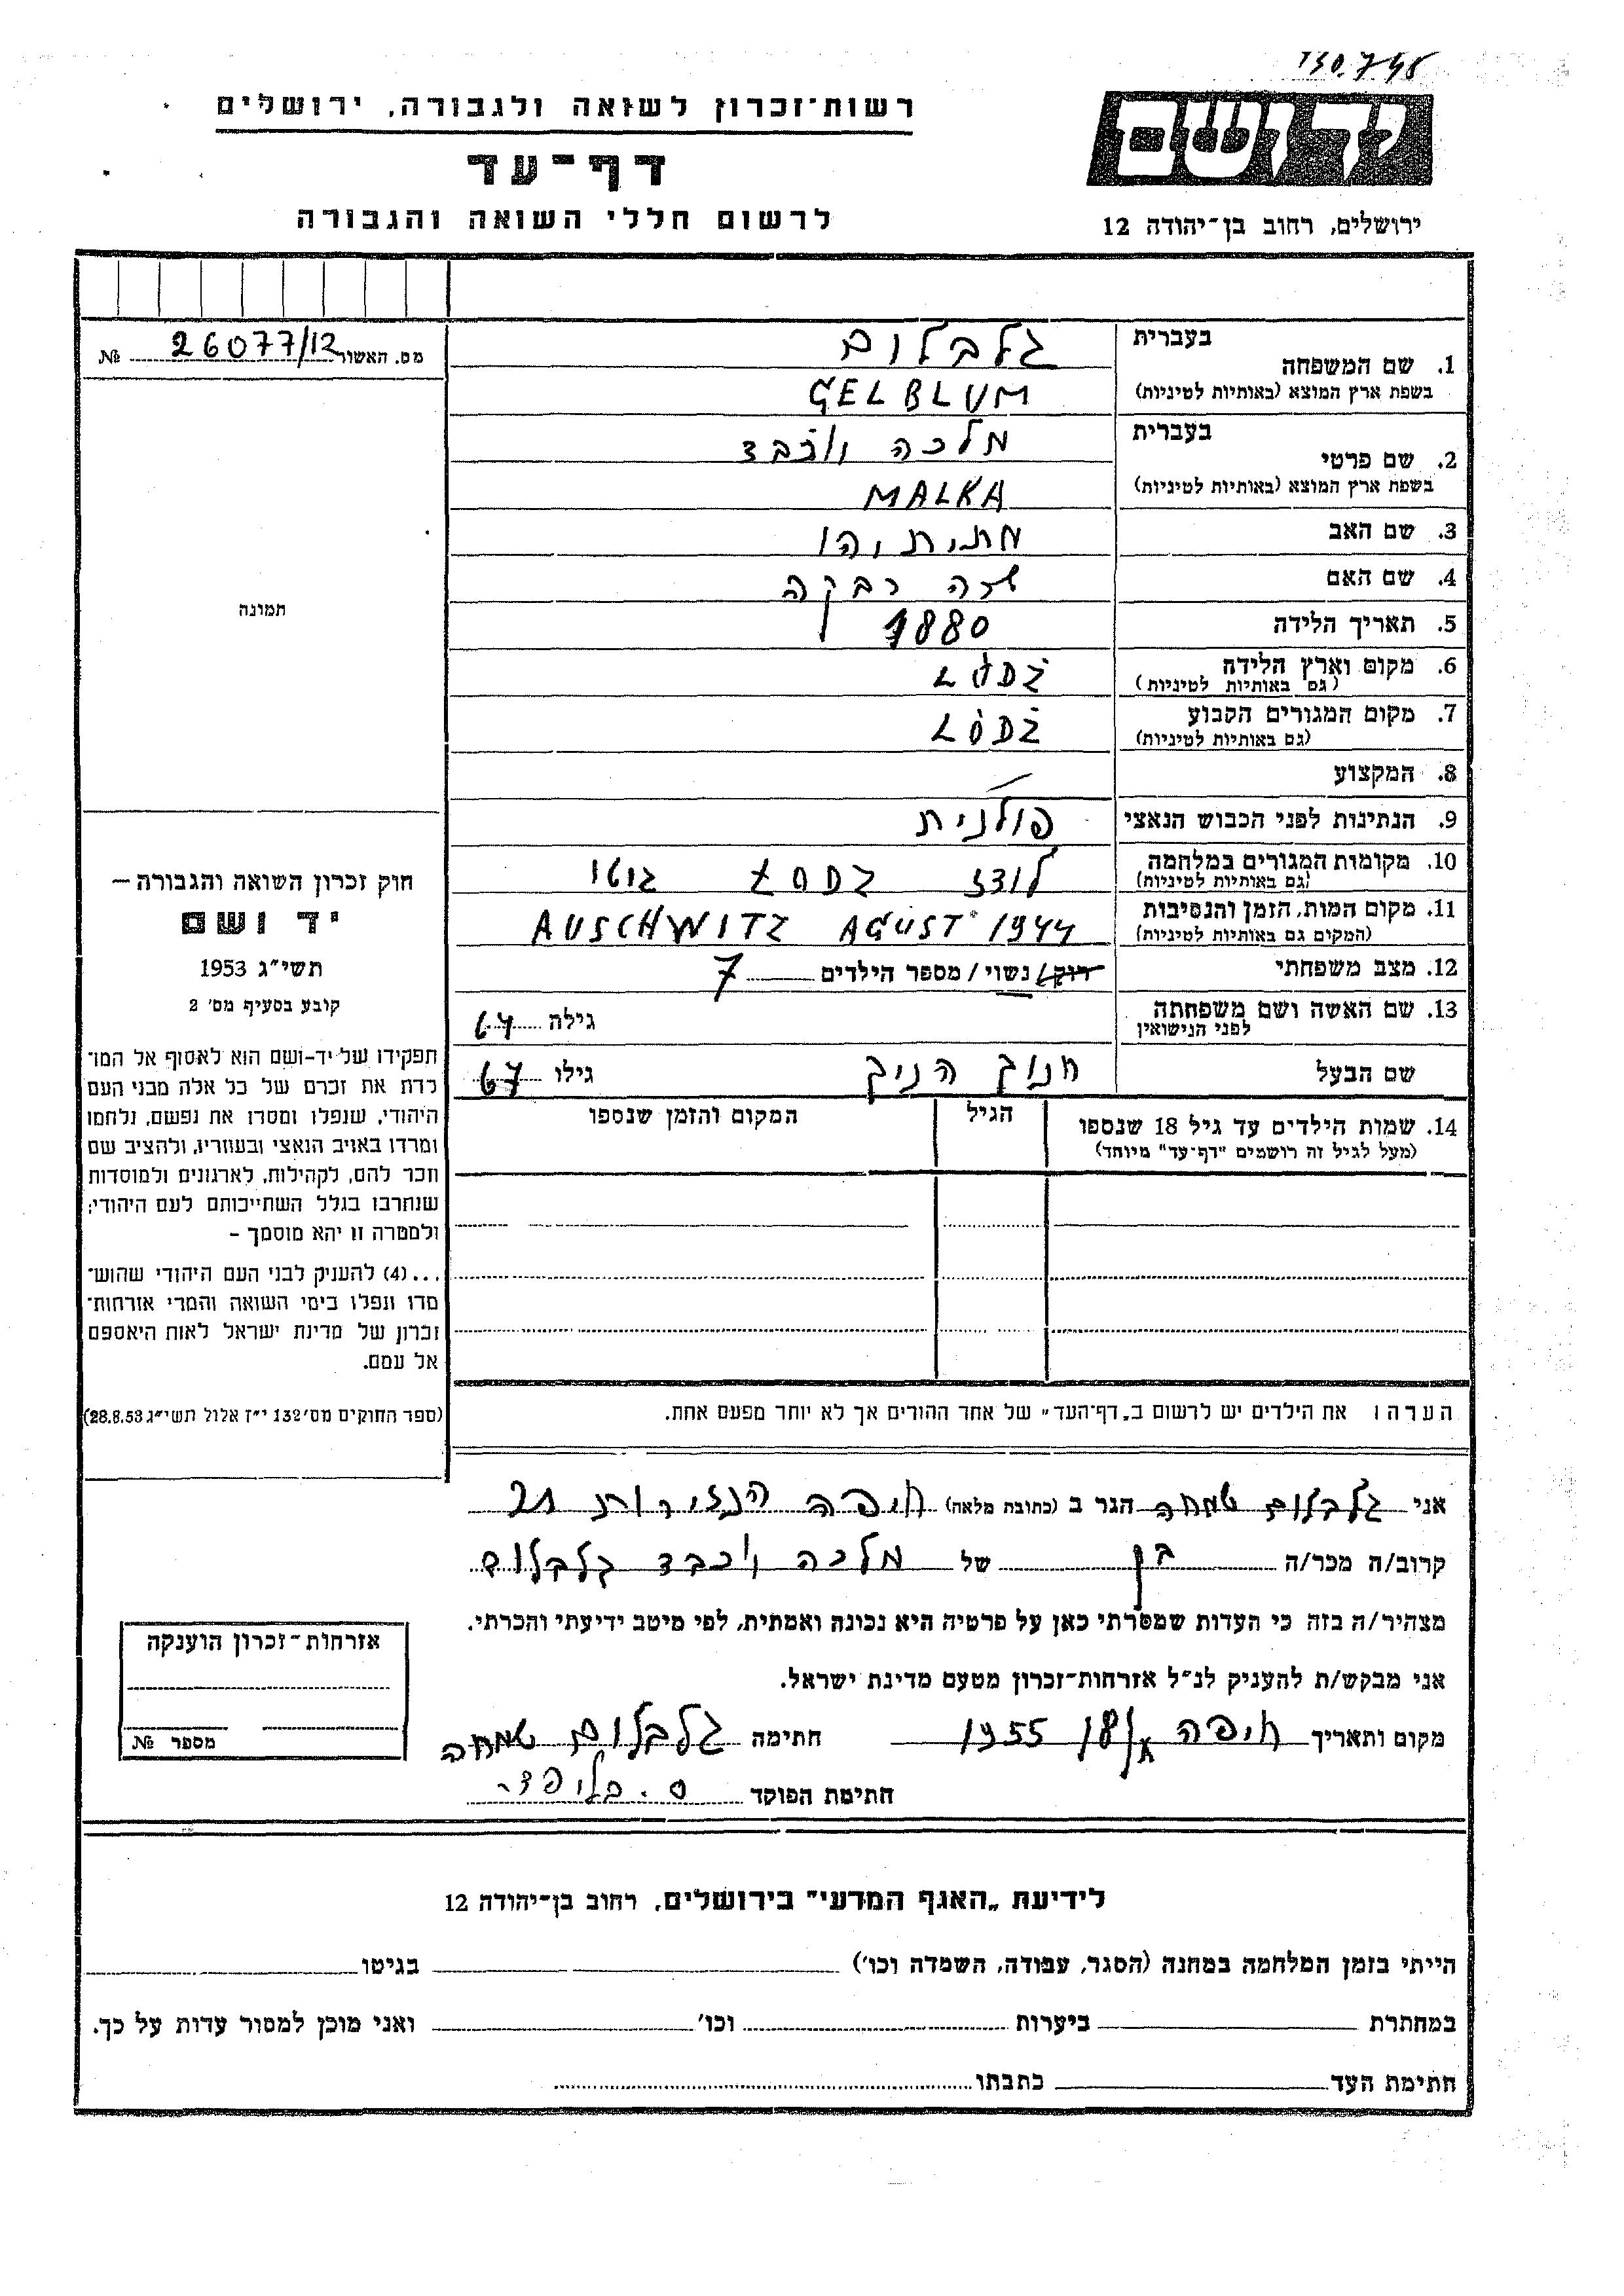 רשות־זכרון לשואה ולגבורה, ירושלים
דף־עד
לרשום חללי השואה והגבורה
יד ושם
ירושלים, רחוב בן־יהודה 12
מס. האשור 26077/12 №
1. שם המשפחה בעברית גלבלום
בשפת ארץ המוצא (באותיות לטיניות) GELBLUM
2. שם פרטי בעברית מלכה יוכבד
בשפת ארץ המוצא (באותיות לטיניות) MALKA
3. שם האב מתיתיהו
4. שם האם שרה רבקה
5. תאריך הלידה 1880
6. מקום וארץ הלידה (גם באותיות לטיניות) LÓDŻ
7. מקום המגורים הקבוע (גם באותיות לטיניות) LÓDŻ
8. המקצוע
9. הנתינות לפני הכבוש הנאצי פולנית
10. מקומות המגורים במלחמה (גם באותיות לטיניות) לודז ŁODZ גיטו
11. מקום המות, הזמן והנסיבות (המקום גם באותיות לטיניות) AUSCHWITZ AGUST 1944
12. מצב משפחתי רווק/ נשוי/ מספר הילדים 7
13. שם האשה ושם משפחתה לפני הנישואין גילה 64
שם הבעל חנוך הניך גילו 67
14. שמות הילדים עד גיל 18 שנספו הגיל המקום והזמן שנספו
(מעל לגיל זה רושמים "דף־עד" מיוחד)
הערה: את הילדים יש לרשום ב„דף־העד" של אחד ההורים אך לא יותר מפעם אחת.
תמונה
חוק זכרון השואה והגבורה —
יד ושם
תשי"ג 1953
קובע בסעיף מס' 2
תפקידו של יד-ושם הוא לאסוף אל המו־
לדת את זכרם של כל אלה מבני העם
היהודי, שנפלו ומסרו את נפשם, נלחמו
ומרדו באויב הנאצי ובעוזריו, ולהציב שם
וזכר להם, לקהילות, לארגונים ולמוסדות
שנחרבו בגלל השתייכותם לעם היהודי;
ולמטרה זו יהא מוסמך –
...(4) להעניק לבני העם היהודי שהוש־
מדו ונפלו בימי השואה והמרי אזרחות־
זכרון של מדינת ישראל לאות היאספם
אל עמם.
(ספר החוקים מס' 132 י"ז אלול תשי"ג 28.8.53)
אני גלבלום שמחה הגר ב (כתובת מלאה) חיפה הנזירות 21
קרוב/ה מכר/ה בן של מלכה יוכבד גלבלום
מצהיר/ה בזה כי העדות שמסרתי כאן על פרטיה היא נכונה ואמתית, לפי מיטב ידיעתי והכרתי.
אני מבקש/ת להעניק לנ"ל אזרחות־זכרון מטעם מדינת ישראל.
מקום ותאריך חיפה 1955 חתימה גלבלום שמחה
חתימת הפוקד
אזרחות־זכרון הוענקה
מספר №
לידיעת „האגף המדעי" בירושלים, רחוב בן־יהודה 12
הייתי בזמן המלחמה במחנה (הסגר, עבודה, השמדה וכו') בגיטו
במחתרת ביערות וכו' ואני מוכן למסור עדות על כך.
חתימת העד כתבתו